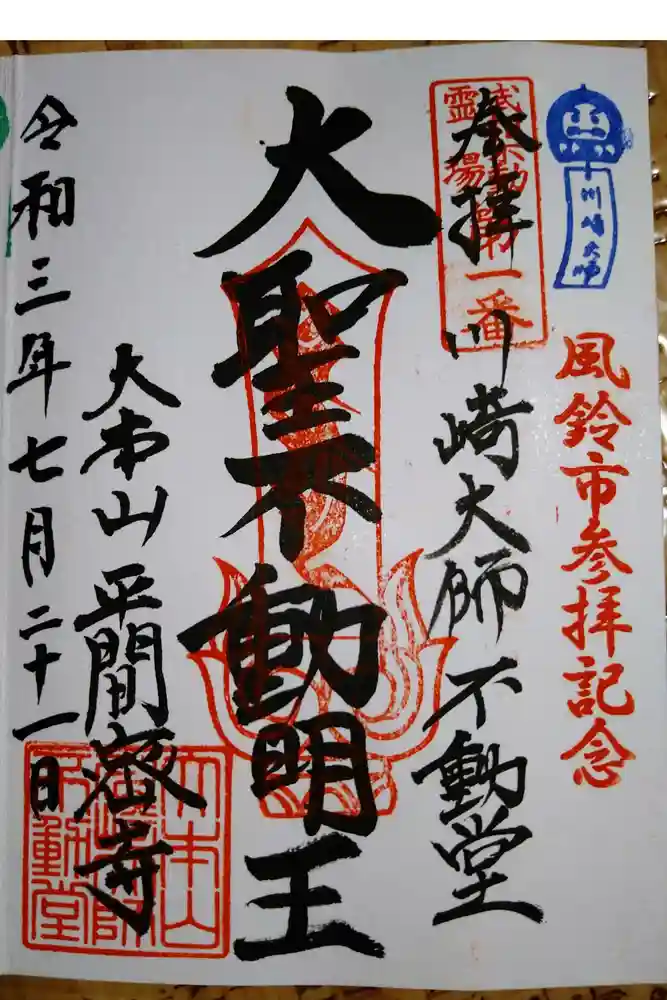 川崎大師
風鈴市参拝記念
奉拝
川崎大師不動堂
霊場
第一番
大聖不動明王
大本山平間寺
令和三年七月二十一日
大本山
不動堂